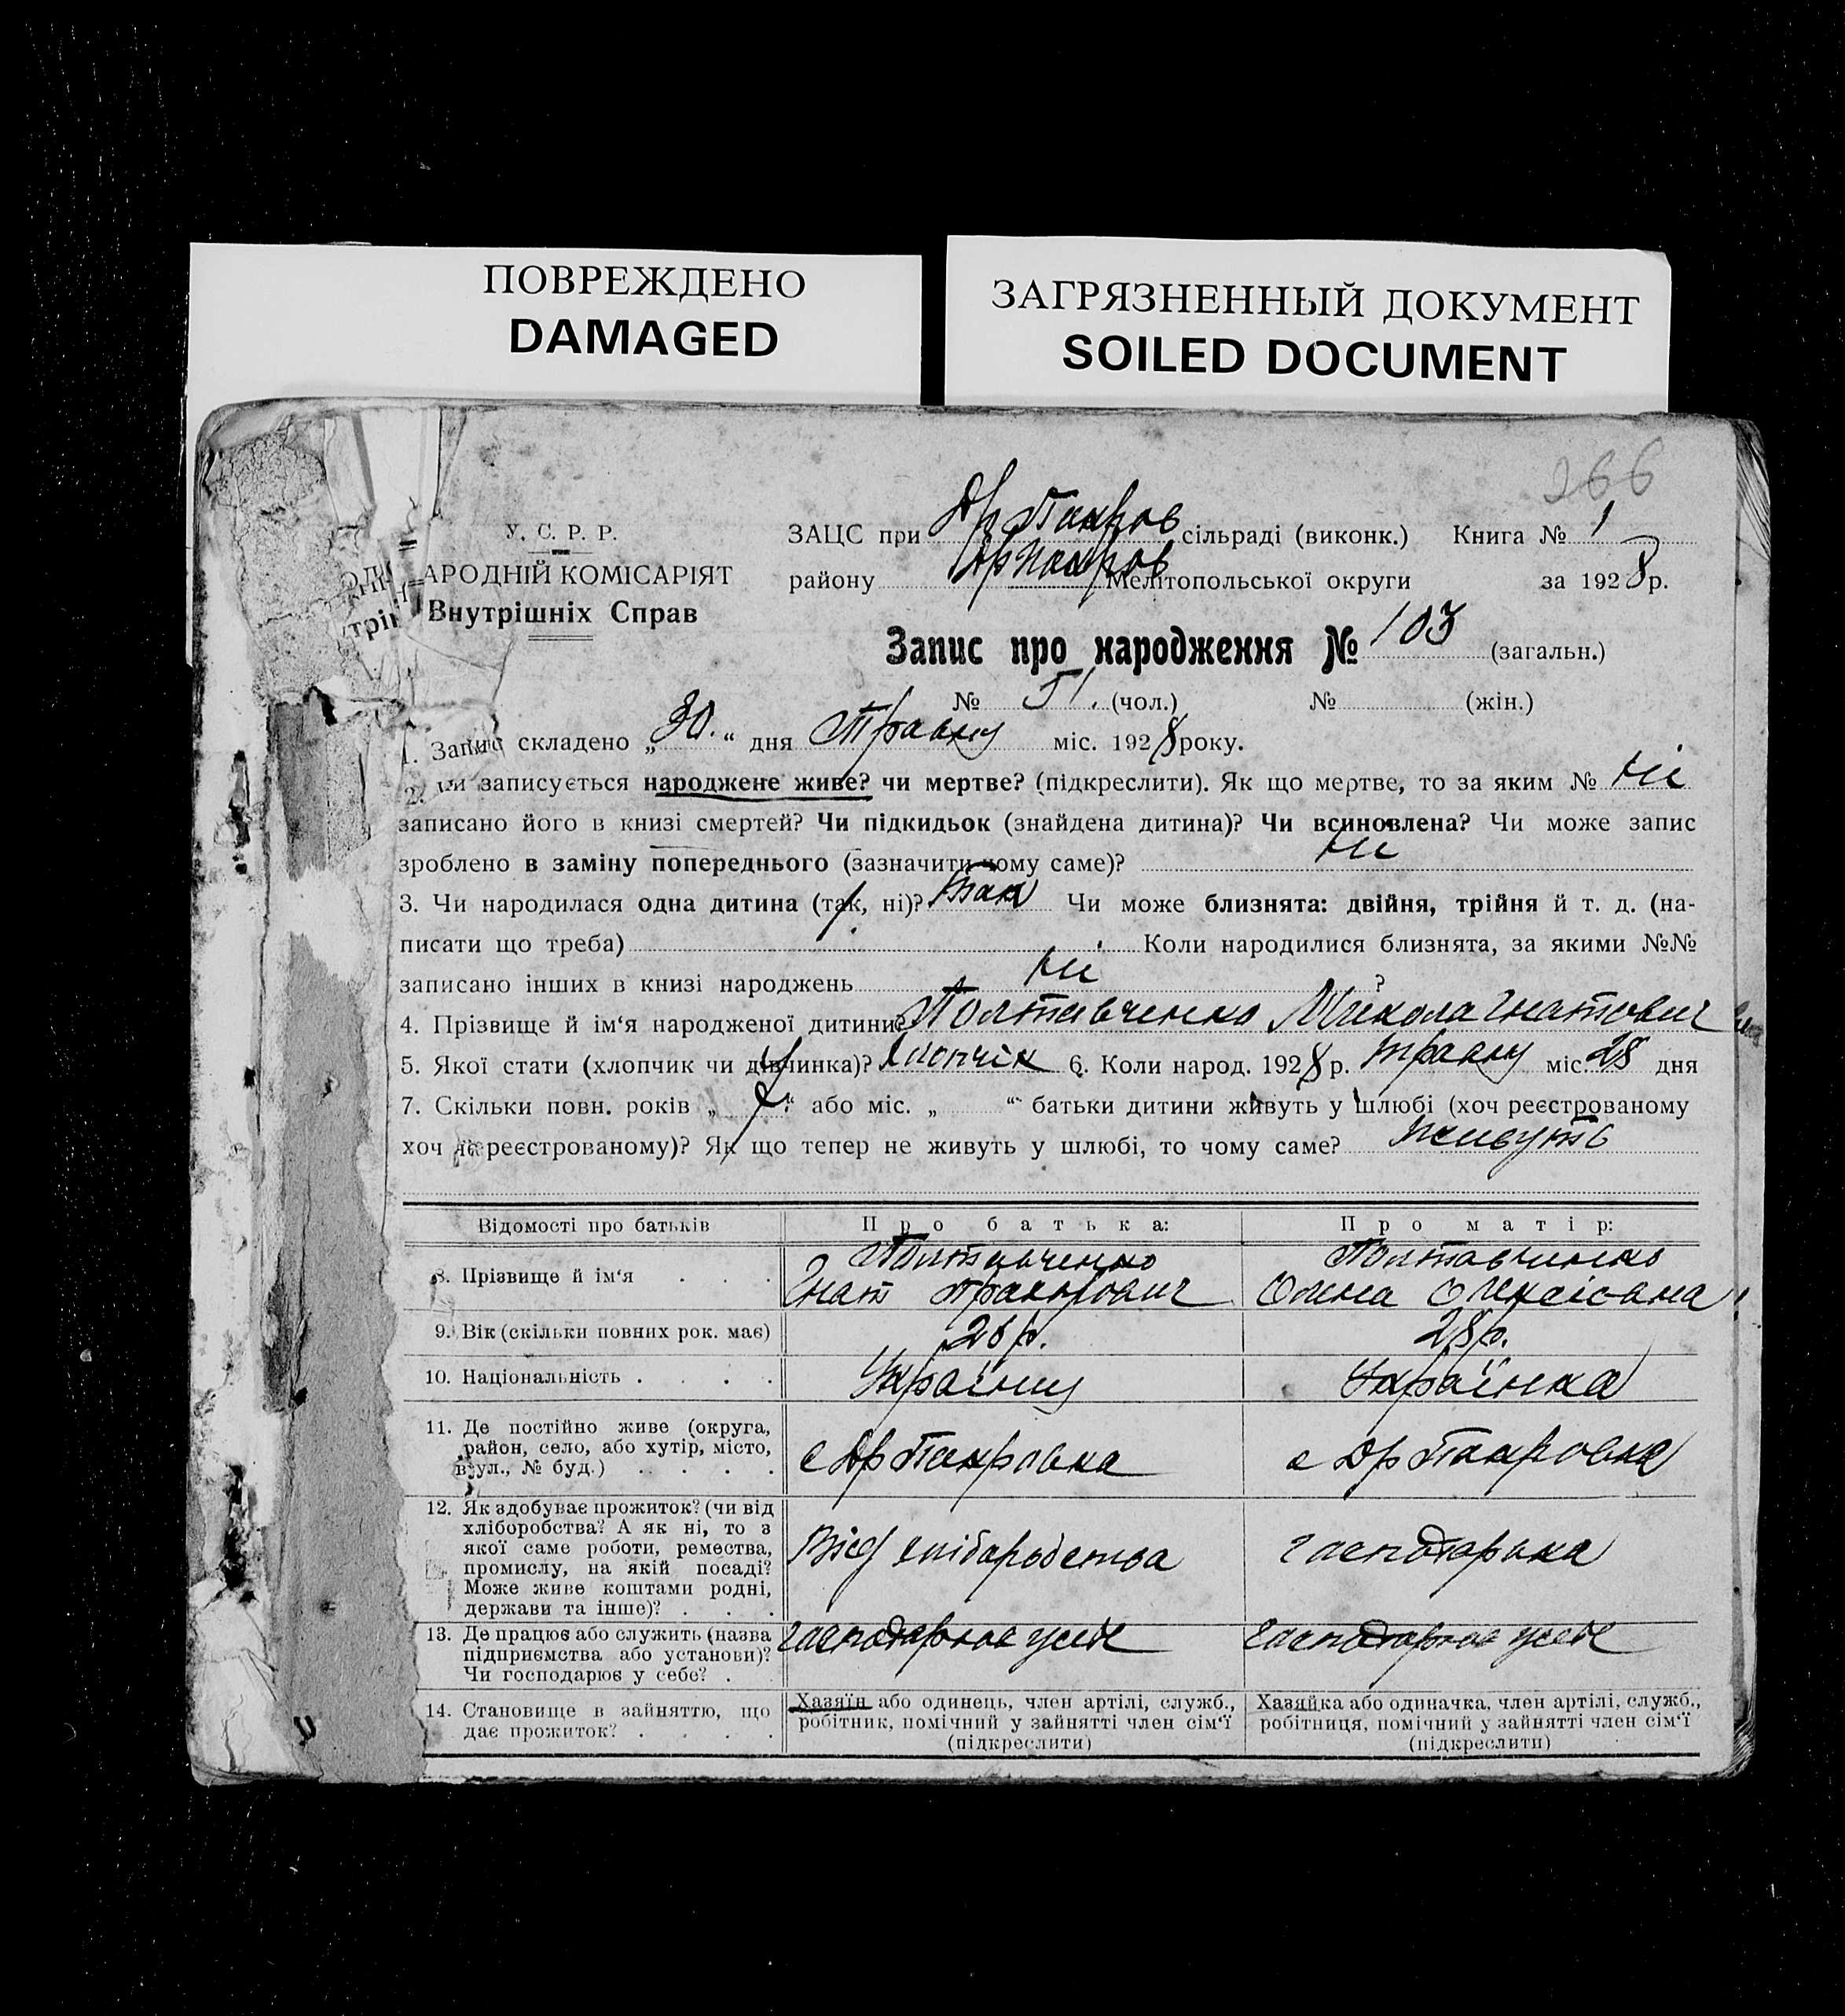 ПОВРЕЖДЕНО
DAMAGED
ЗАГРЯЗНЕННЫЙ ДОКУМЕНТ
SOILED DOCUMENT
266
У. С. Р. Р.
АРОДНІЙ КОМІСАРІЯТ
Внутрішніх Справ
ЗАЦС при сільраді (виконк.) Книга № 1
району Мелітопольської округи за 1928 р.
Запис про народження № 103 (загальн.)
№ 51. (чол.) № (жін.)
1. Запис складено „30.“ дня Травня міс. 1928 року.
2. Чи записується народжене живе? чи мертве? (підкреслити). Як що мертве, то за яким № Ні
записано його в книзі смертей? Чи підкидьок (знайдена дитина)? Чи всиновлена? Чи може запис
зроблено в заміну попереднього (зазначити чому саме)? Ні
3. Чи народилася одна дитина (так, ні)? Так Чи може близнята: двійня, трійня й т. д. (на-
писати що треба) Коли народилися близнята, за якими №№
записано інших в книзі народжень Ні ?
4. Прізвище й ім‘я народженої дитини? Полтавченко Микола Гнатович
5. Якої стати (хлопчик чи дівчинка)? Хлопчік 6. Коли народ. 1928 р. травня міс. 28 дня
7. Скільки повн. років „ “ або міс. „ “ батьки дитини живуть у шлюбі (хоч реєстрованому
хоч не реєстрованому)? Як що тепер не живуть у шлюбі, то чому саме? Живуть
Відомості про батьків Про батька: Про матір:
8. Прізвище й ім‘я . . . Полтавченко Гнат Полтавченко
9. Вік (скільки повних рок. має) 26 р. 28 р.
10. Національність . . . . Українец Українка
11. Де постійно живе (округа,
район, село, або хутір, місто,
вул., № буд.) . . . .
12. Як здобуває прожиток? (чи від
хліборобства? А як ні, то з
якої саме роботи, ремества,
промислу, на якій посаді?
Може живе коштами родні,
держави та інше)? . . .
Від хліборобства господарька
13. Де працює або служить (назва
підприємства або установи)?
Чи господарює у себе? . .
господарює у себе господарює у себе
14. Становище в зайняттю, що
дає прожиток? . . . .
Хазяїн або одинець, член артілі, служб.,
робітник, помічний у зайнятті член сім‘ї
(підкреслити)
Хазяйка або одиначка, член артілі, служб.,
робітниця, помічний у зайнятті член сім‘ї
(підкреслити)